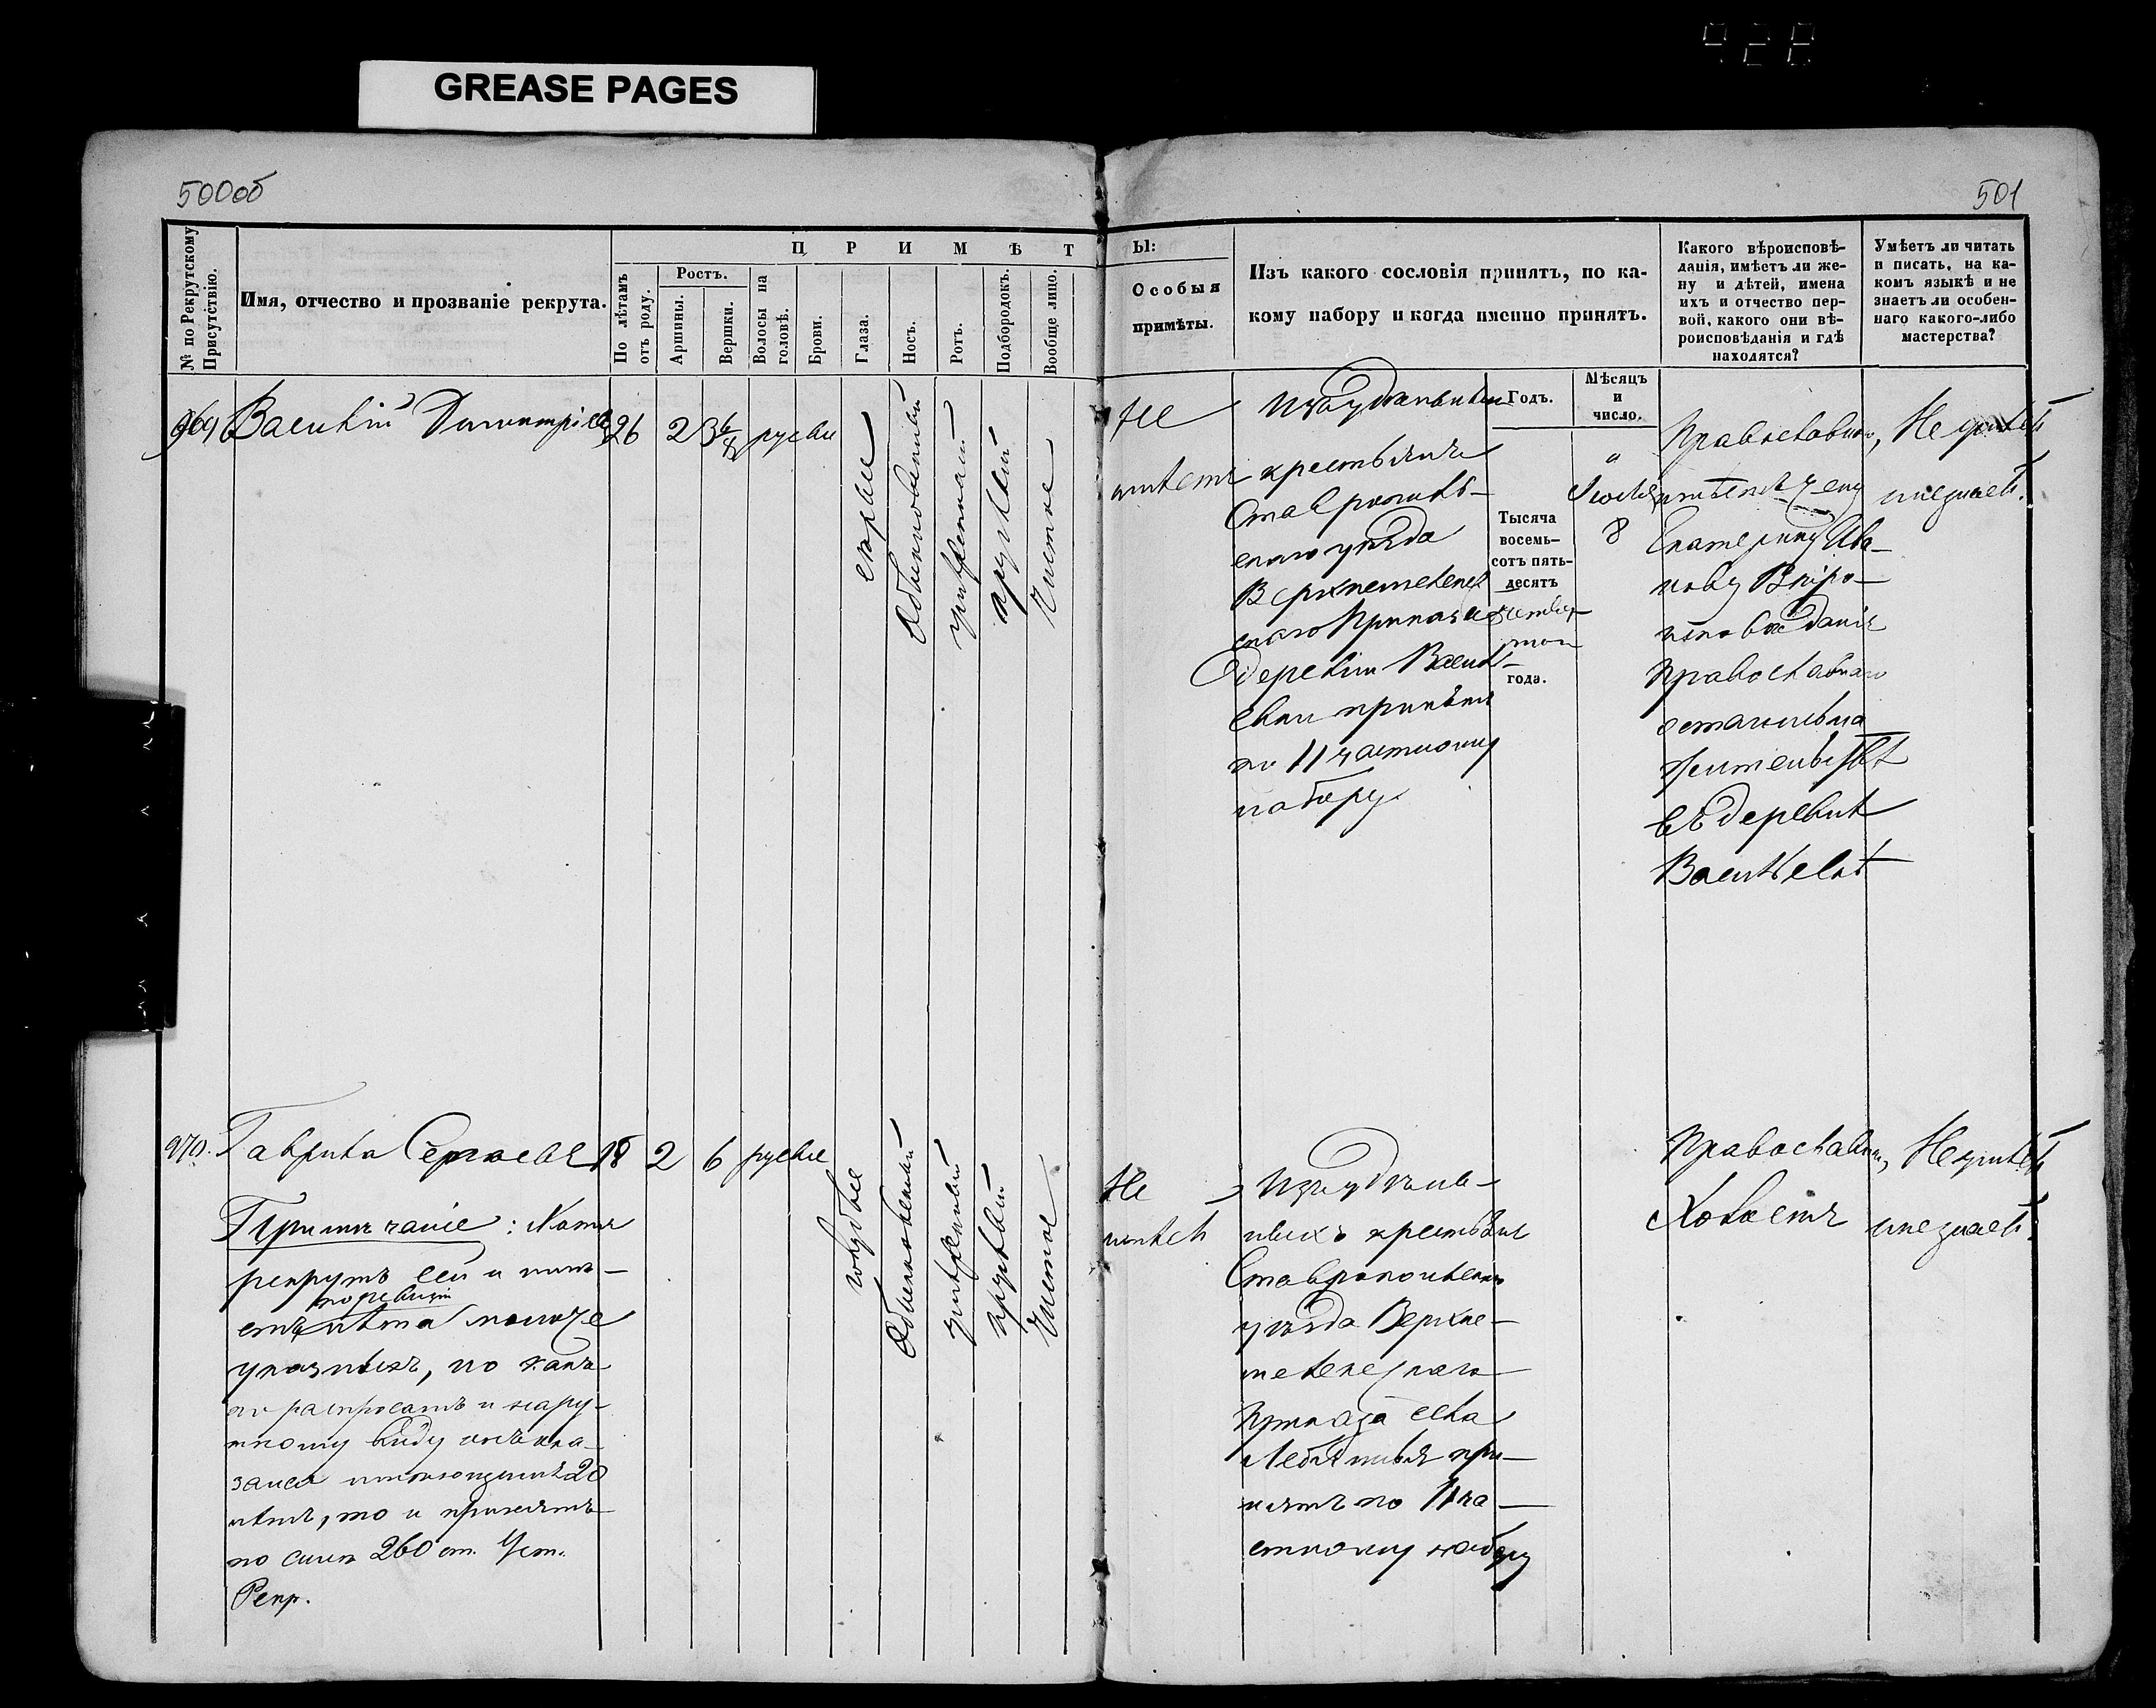 GREASE PAGES
500об
501
№ по Рекрутскому Присутствію.
Имя, отчество и прозваніе рекрута.
П Р И М Ѣ Т
По лѣтамъ отъ роду.
Ростъ.
Аршины.
Вершки.
Волосы на головѣ.
Брови.
Глаза.
Носъ.
Ротъ.
Подбородокъ.
Вообще лицо.
Ы:
Особыя
примѣты.
Изъ какого сословія принятъ, по ка-
кому набору и когда именно принятъ.
Какого вѣроисповѣ-
данія, имѣетъ ли же-
ну и дѣтей, имена
ихъ и отчество пер-
вой, какого они вѣ-
роисповѣданія и гдѣ
находятся?
Умѣетъ ли читать
и писать, на ка-
комъ языкѣ и не
знаетъ ли особен-
наго какого-либо
мастерства?
969
Василій Димитріевъ
26
2
3 6/8
русые
скорые
Обыкновенный
умѣренный
круглый
Чистое
Не
имѣетъ
Изъ удѣльныхъ
крестьянъ
Ставрополь-
скаго уѣзда
Верхне
скаго Приказа
деревни Василь-
евки принятъ
по 11 частному
набору.
Годъ.
Тысяча
восемь-
сотъ пять-
десятъ
четвер-
таго
года.
Мѣсяцъ
и
число.
8
Православнаго,
имѣетъ жену
Екатерину Ива-
нову Вѣро-
исповѣданія
православнаго
жительствѣ
въ деревнѣ
Васильевкѣ
Не умѣетъ
и не знаетъ.
970.
Гаврила Сергѣевъ
18
2
6
русые
голубые
Обыкновенный
умѣренный
круглый
Чистое
Примѣчаніе: Хотя
рекрутъ сей и имѣ-
по ревизіи
етъ лѣта моложе
указныхъ, но какъ
по распросамъ и нару-
жному виду онъ ока-
зался имѣющимъ 20
лѣтъ, то и принятъ
по силѣ 260 ст. Уст.
Рекр.
Не
имѣетъ
Изъ удѣль-
ныхъ крестьянъ
Ставропольскаго
уѣзда Верхне-
Приказа села
Лебяжья при-
нятъ по 11 ча-
стному набору
Православнаго,
Холостъ
Не умѣетъ
и не знаетъ.